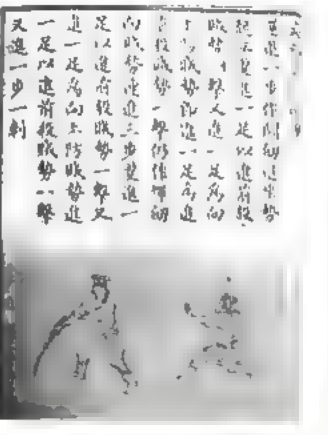 更進一步作向前進坐勢
起立更進一足以進前殺
賊勢一擊又進一足為向
上防賊勢即進一足為向
前殺賊勢一擊仍作揮劒
向賊勢連進三步更進一
足以進前殺賊勢一擊又
進一足為向上防賊勢進
一足以進前殺賊勢一擊
又進一步一刺